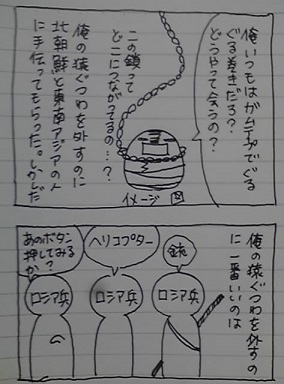 俺いつもはガムテープでぐる
ぐる巻きだろ?
どうやって会うの?
この鎖って
どこにつながってるの…?
俺の猿ぐつわを外すのに
北朝鮮と東南アジアの人
に手伝ってもらった。しかしだ
イメージ図
俺の猿ぐつわを外すの
に一番いいのは
銃
ヘリコプター
あのボタン
押してみる?
ロシア兵
ロシア兵
ロシア兵